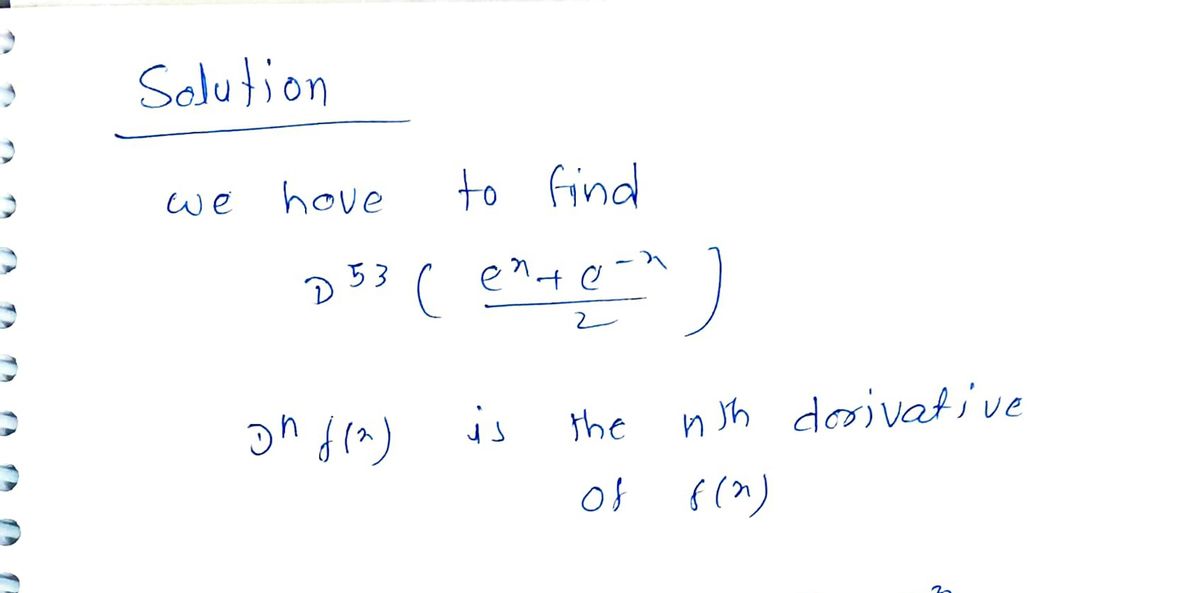 Solution
we have to find
D^53 ( (e^x + e^-x) / 2 )
D^n f(x) is the nth derivative
of f(x)